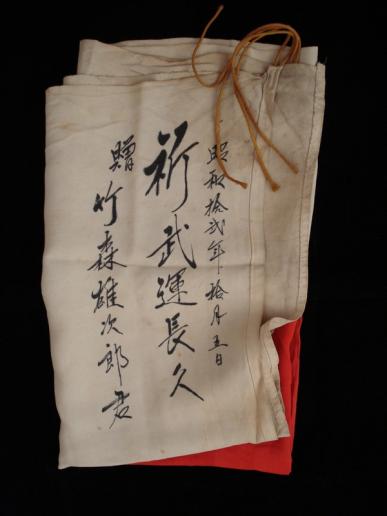 昭和拾弐年拾月五日
祈武運長久
贈竹森雄次郎君